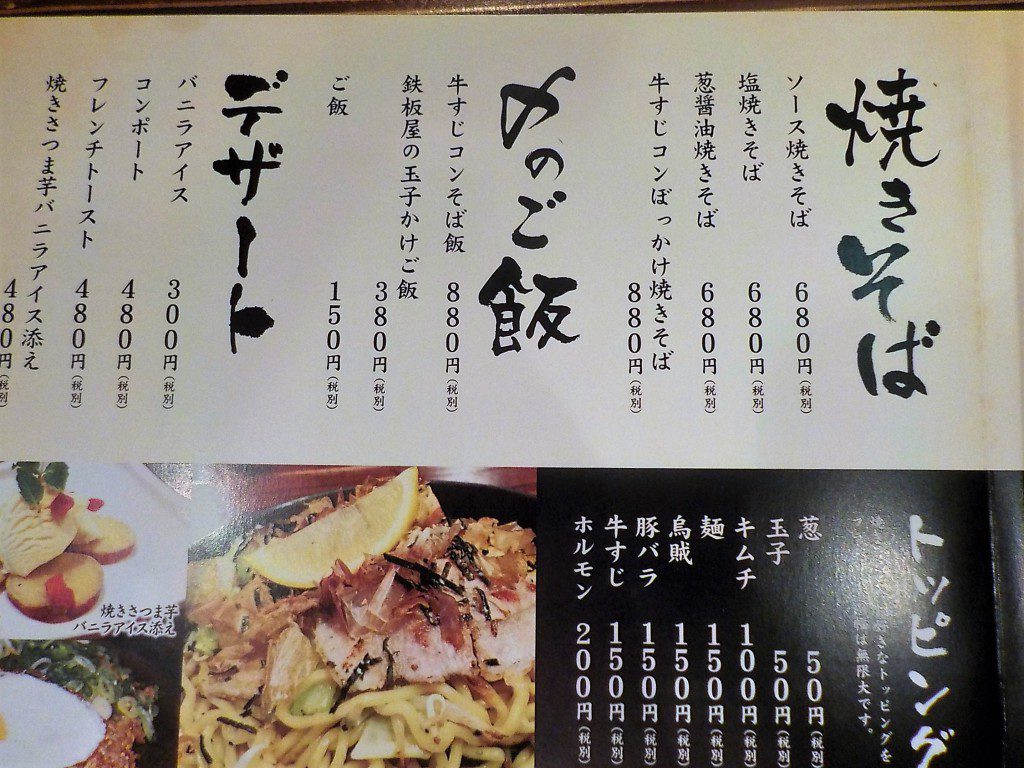 焼きそば
ソース焼きそば 680円(税別)
塩焼きそば 680円(税別)
葱醤油焼きそば 680円(税別)
牛すじコンぼっかけ焼きそば 880円(税別)
〆のご飯
牛すじコンそば飯 880円(税別)
鉄板屋の玉子かけご飯 380円(税別)
ご飯 150円(税別)
デザート
バニラアイス 300円(税別)
コンポート 480円(税別)
フレンチトースト 480円(税別)
焼きさつま芋バニラアイス添え 480円(税別)
トッピング
きなトッピングを
は無限大です。
葱 50円(税別)
玉子 50円(税別)
キムチ 100円(税別)
麺 150円(税別)
烏賊 150円(税別)
豚バラ 150円(税別)
牛すじ 150円(税別)
ホルモン 200円(税別)
焼きさつま芋
バニラアイス添え